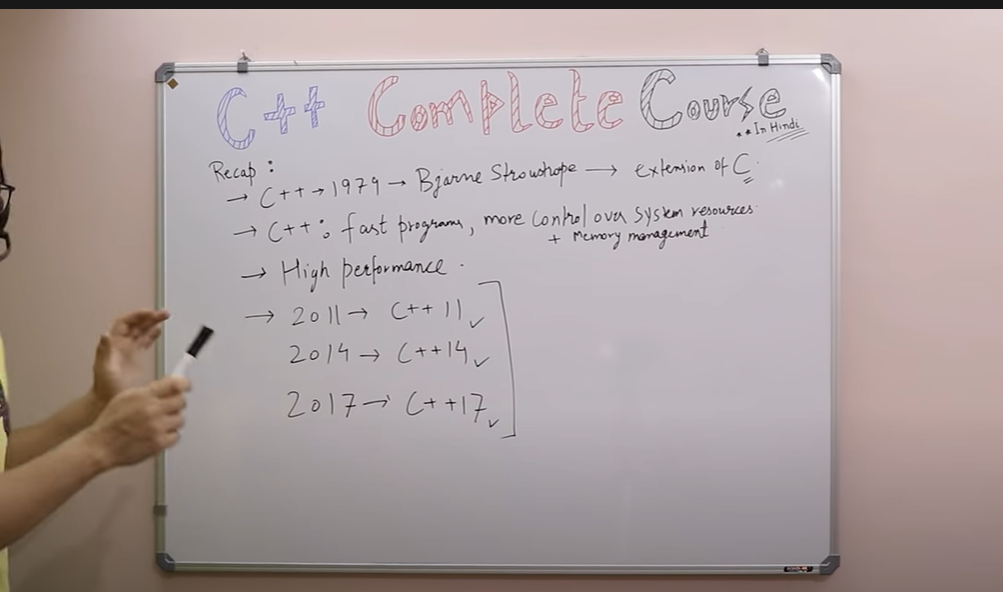 C++ Complete Course
** In Hindi
Recap :
→ C++ → 1979 → Bjarne Stroushope → extension of C.
→ C++ : fast programs, more control over system resources
+ Memory management
→ High performance.
→ 2011 → C++ 11 ✓
2014 → C++14 ✓
2017 → C++17 ✓